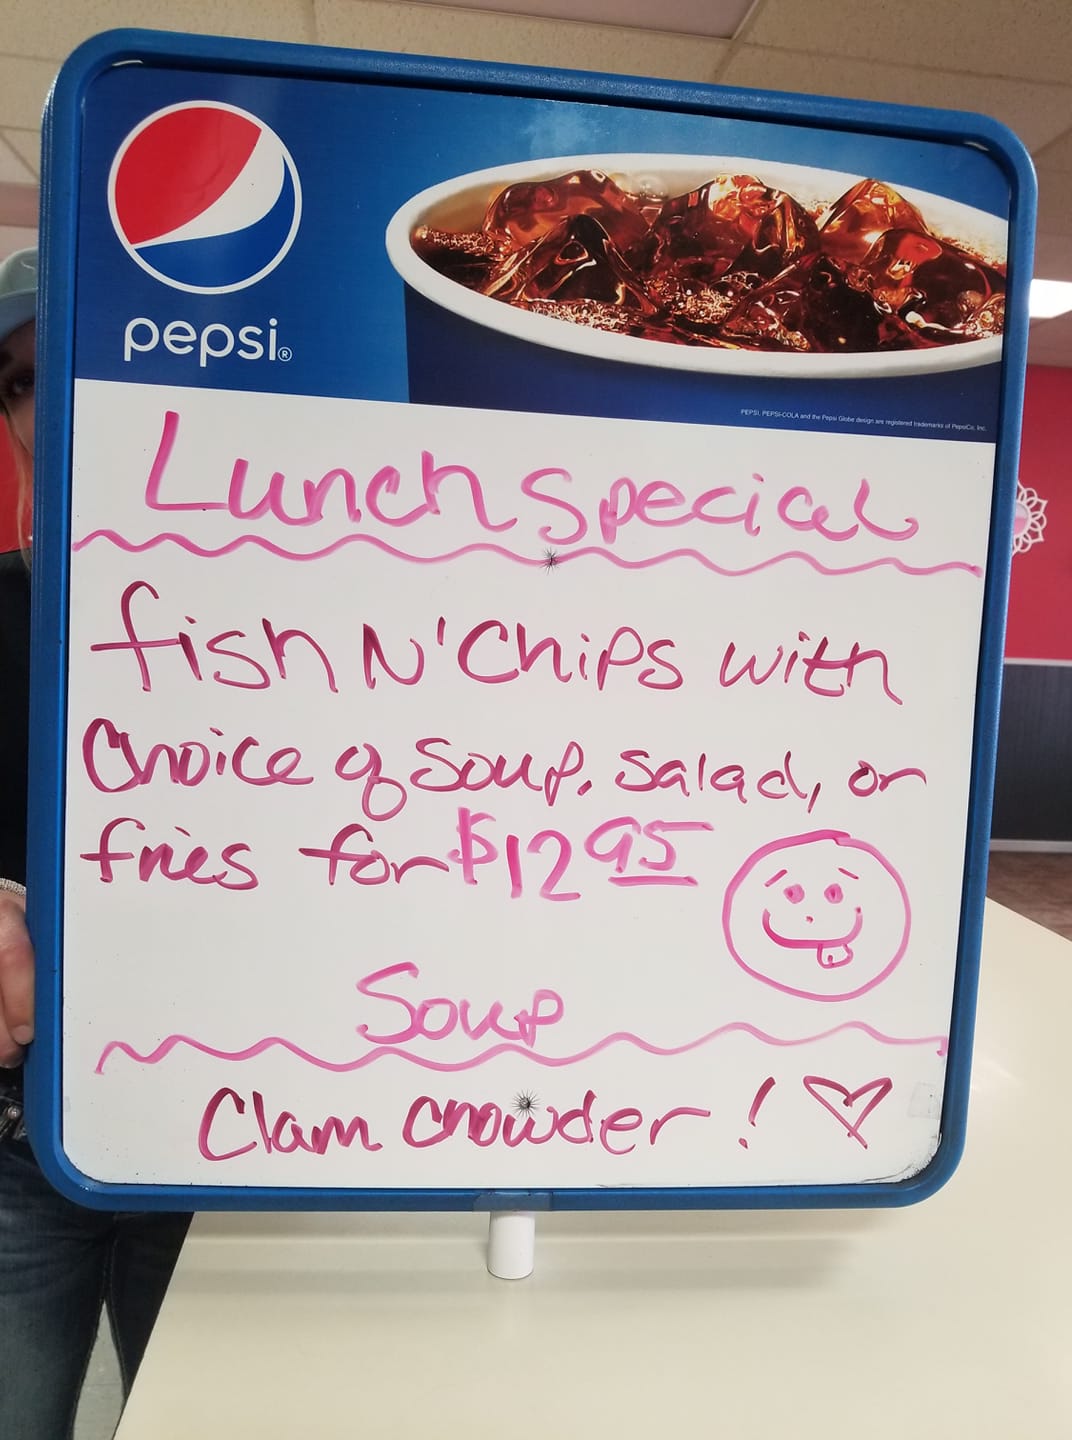 pepsi®
PEPSI, PEPSI-COLA and the Pepsi Globe design are registered trademarks of PepsiCo, Inc.
Lunch special
fish N' Chips with
Choice of Soup, salad, or
fries for $12 95
Soup
Clam chowder!